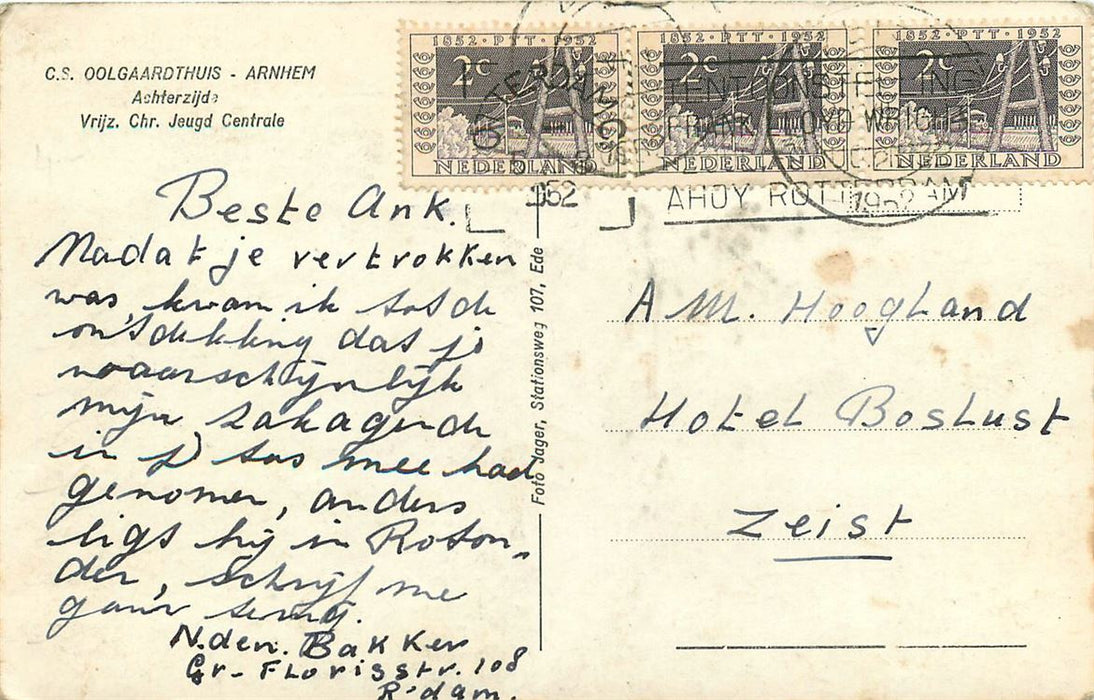 C.S. OOLGAARDTHUIS - ARNHEM
Achterzijde
Vrijz. Chr. Jeugd Centrale
1852 · PTT · 1952
2c
NEDERLAND
1852 · PTT · 1952
2c
NEDERLAND
1852 · PTT · 1952
2c
NEDERLAND
TENTOONSTELLING
FRANK LLOYD WRIGHT
AHOY ROTTERDAM
1952
1952
Beste Ank.
Nadat je vertrokken
was, kwam ik tot de
ontdekking dat je
waarschijnlijk
mijn zakagenda
in je tas mee had
genomen, anders
ligt hij in Roton-
der, schrijf me
gauw terug.
N. den. Bakker
Gr- Florisstr. 108
R'dam.
Foto Jager, Stationsweg 107, Ede
A M. Hoogland
Hotel Boslust
Zeist